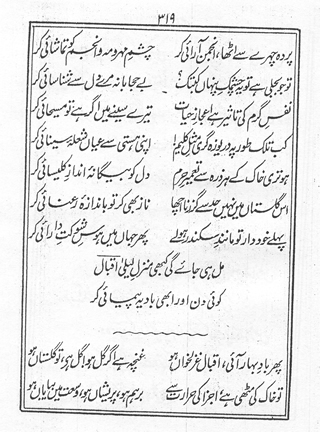 ۳۱۹
پردہ چہرے سے اٹھا، انجمن آرائی کر
چشمِ مہر و مہ و انجم کو تماشائی کر
تو جو بجلی ہے تو یہ چشمک پنہاں کب تک؟
بے حجابانہ مرے دل سے شناسائی کر
نفسِ گرم کی تاثیر ہے اعجازِ حیات
تیرے سینے میں اگر ہے تو مسیحائی کر
کب تلک طور پہ دریوزہ گری مثلِ کلیمؑ!
اپنی ہستی سے عیاں شعلۂ سینائی کر
ہو تری خاک کے ہر ذرہ سے تعمیرِ حرم
دل کو بیگانۂ اندازِ کلیسائی کر
اس گلستاں میں نہیں حد سے گزرنا اچھا
ناز بھی کر تو باندازۂ رعنائی کر
پہلے خود دار تو مانندِ سکندر ہو لے
پھر جہاں میں ہوسِ شوکتِ دارائی کر
مل ہی جائے گی کبھی منزلِ لیلیٰ اقبال
کوئی دن اور ابھی بادیہ پیمائی کر
پھر بادِ بہار آئی، اقبال غزلخواں ہو
غنچہ ہے اگر گل ہو! گل ہے تو گلستاں ہو
تو خاک کی مٹھی ہے اجزا کی حرارت سے
برہم ہو، پریشاں ہو، وسعت میں بیاباں ہو